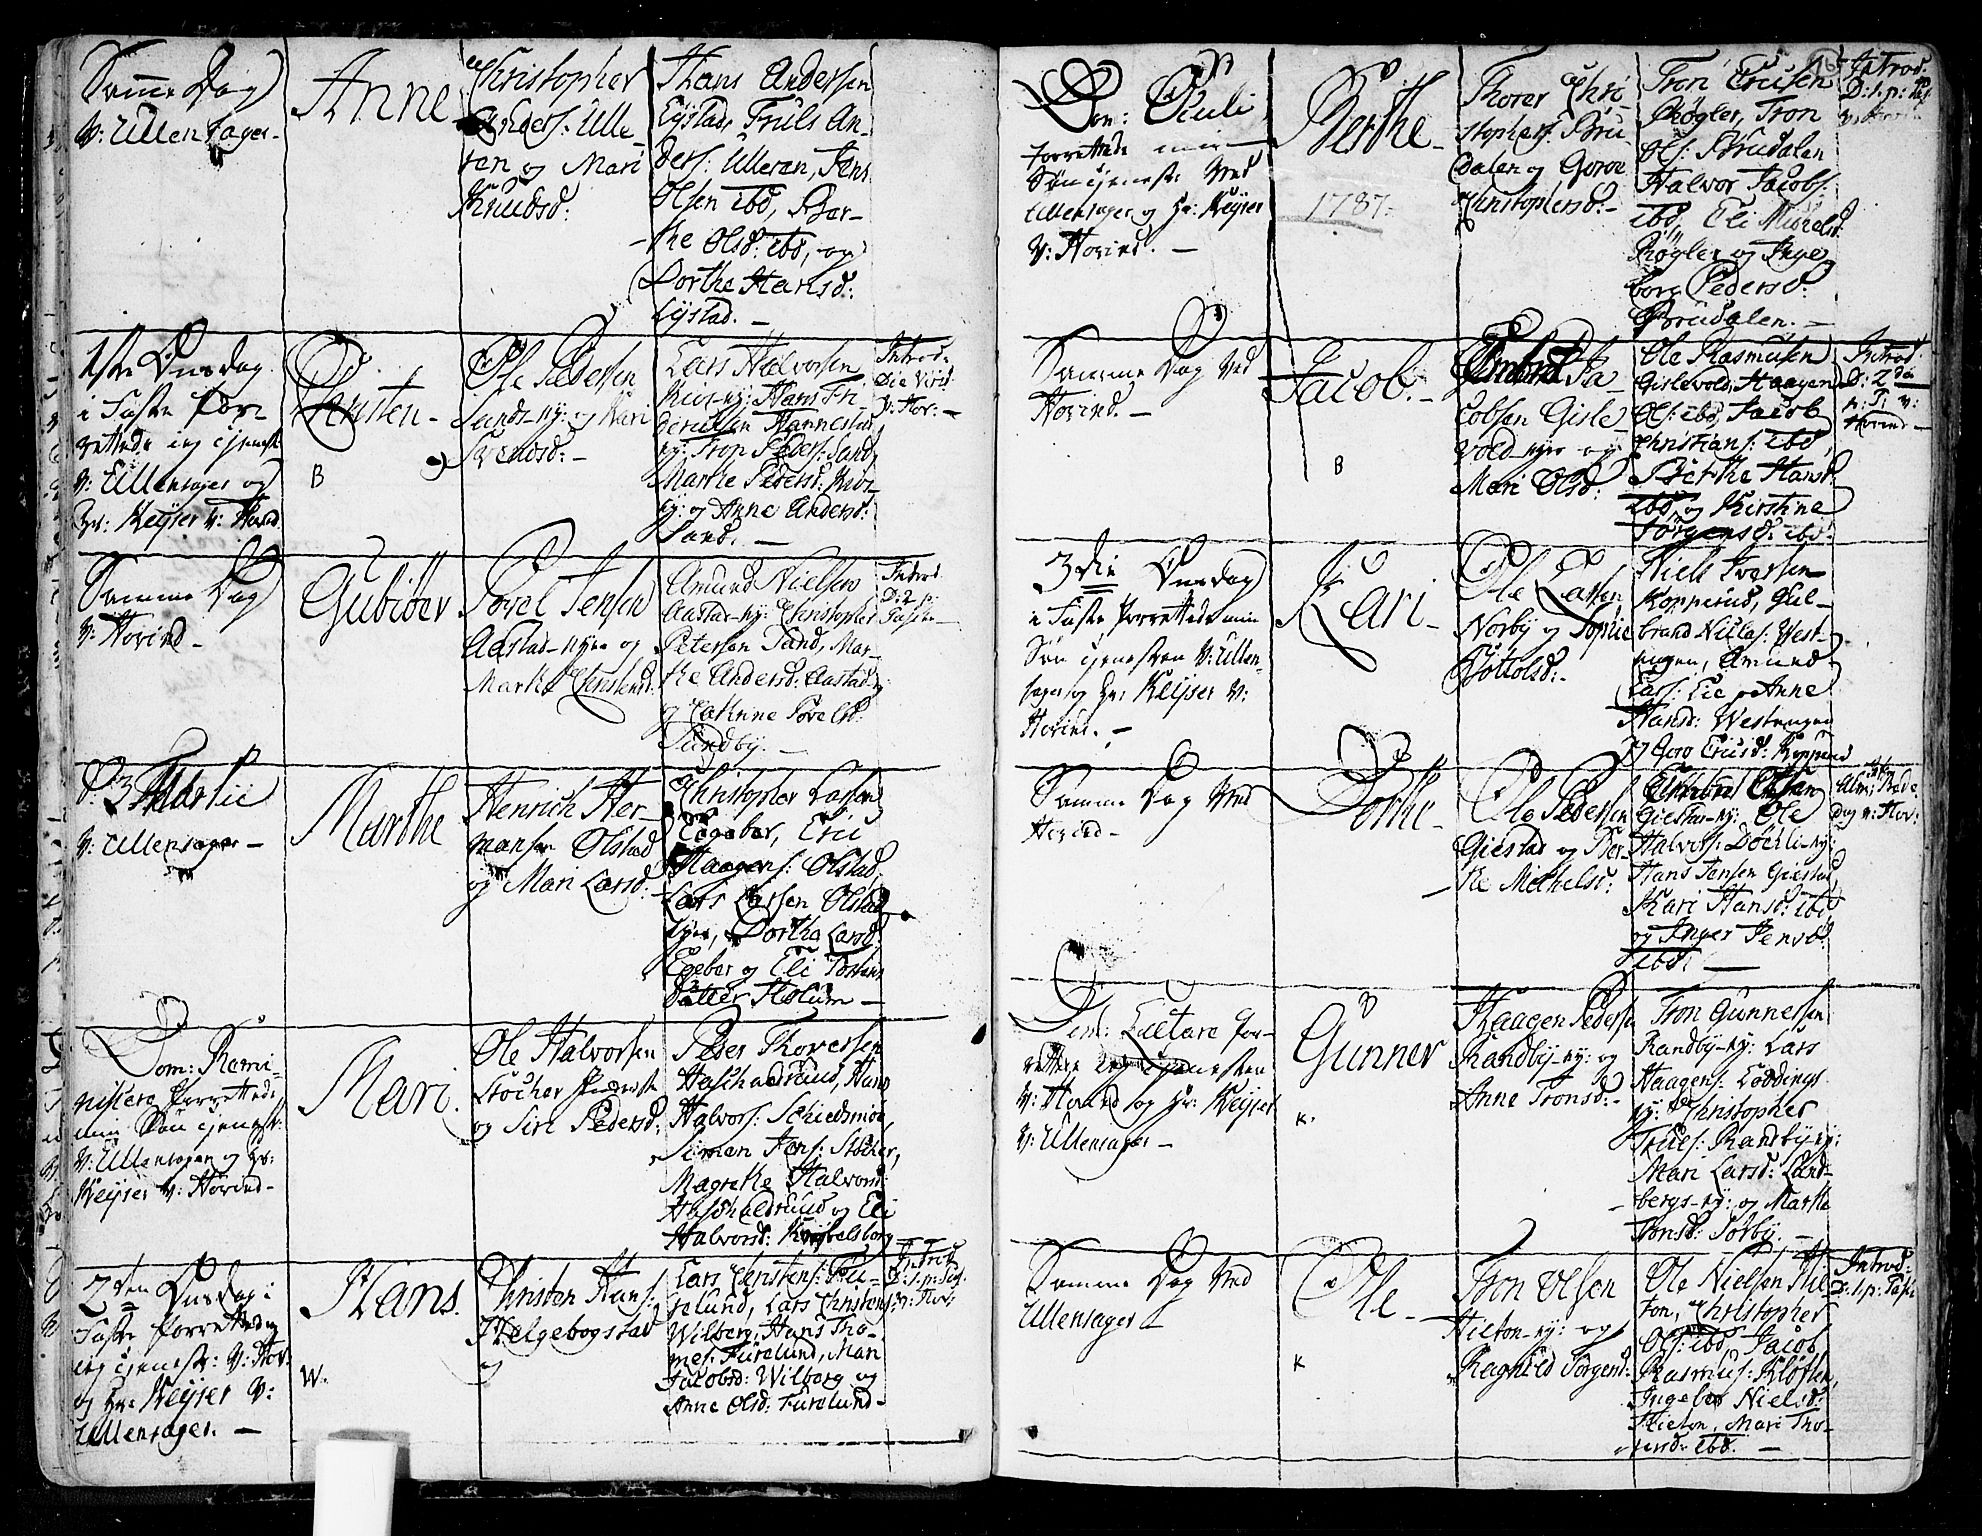 Samme Dag
V: Ullensager-
Anne
Christopher
Anders: Ulle
ren og Mari
Knudsd:
Hans Andersen
Lystad, Truls An-
ders: Ulleren, Jens
Olsen ibd, Ber-
the Olsd: ibd, og
Dorthe Hansd:
Lystad. -
1ste Onsdag
i Faste forr
rettede ieg tjenest
V: Ullensager og
Hr: Keyser V: Hovind
Christen-
B
Ole Pedersen
Sand-ny: og Mari
Svendsd: -
Lars Halvorsen
Hans Fri
derichsen Hannestad
ny: Tron Peders: Sand,
Marthe Pedersd:
ny: og Anne Andersd:
Sand. -
Introd:
V: Hov: -
Samme Dag
V: Hovind -
Gubiør
Povel Jensen
Aastad-nyre og
Marthe Christensd:
Amund Nielsen
Aastad-ny: Christopher
Petersen Sand, Mar-
the Andersd: Aastad
og Cathrine Povelsd:
Sundby. -
Introd
D: 2 p:
Faste -
D: 3 Martii
V: Ullensager -
Marthe
Henrich Her-
mansen Olstad
og Mari Larsd: -
Christopher Larsen
Egeber, Eric
Haagens: Olstad,
Lars Larsen Olstad
nyre, Dorthe Larsd:
Egeber og Eli Tostens
Datter Holum -
Dom: Remi-
niscere forrettede
min Søn tjenest:
V: Ullensager og Hr:
Keyser V: Hovind -
Mari.
Ole Halvorsen
Stocker
og Siri Pedersd:
Peder Thoresen
Haschaldrud, Hans
Halvors: Schiedsmoe,
Simen Jens: Stocker,
Magrethe Halvorsd:
Haschaldrud og Eli
Halvorsd:
2den Onsdag i
Faste forrettede
ieg tjenest: V: Hov:
og Hr: Keyser V:
Ullensager. -
Hans.
W.
Christen Hans:
Helgebogstad
og
Lars Christens: Fu-
relund, Lars Christens:
Wilberg, Hans Tho-
mes: Furelund, Mari
Jacobsd: Wilberg og
Anne Olsd: Furelund -
Introd
D: 1. p: Pas:
v: Hov:
Dom: Oculi
forrettede min
Søn tjeneste Ved
Ullensager og Hr: Keyser
V: Hovind. -
Berthe -
1787.
Thorer Chri
stophers: Bru
dalen og Goroe
Christophersd: -
Tron Ericsen
Røgler, Tron
Ols: Brudalen
Halvor Jacobs:
ibd, Eli Michelsd:
Røgler og Inge
borg Pedersd:
Brudalen. -
Introd
D: 1. p: Pas:
Samme Dag Ved
Hovind. -
Jacob. -
B
Ja
cobsen Gisle
vold-nyre og
Mari Olsd:
Ole Rasmusen
Gislevold, Haagen
Ols: ibd, Jacob
Christians: ibd,
Berthe Hansd:
ibd, og Kirstine
Jørgensd: ibd.
Introd:
D: 2da
p: P: v:
Hovind -
3die Onsdag
i Faste forrettede min
Søn tjenesten V: Ullen-
sager og Hr: Keyser V:
Hovind. -
Kari -
Ole Larsen
Norby og Sophie
Bottolsd: -
Niels Iversen
Kopperud, Gul-
brand Niclas: West-
engen, Amund
Lars: Lie, og Anne
Hansd: Westengen
og Goro Ericsd: Kopperud
Samme Dag Ved
Hovind -
Dorthe -
Ole Pedersen
Giestad og Ber-
the Michelsd:
Olsen
Giestad-ny: Ole
Halvors: Døhli-ny:
Hans Jensen Giestad
Kari Hansd: ibd
og Inger Jensd:
ibd. -
Alm: Bede
Dag v: Hov:
Dom: Lætare for-
rettede ieg tjenesten
V: Hovind og Hr: Keyser
V: Ullensager -
Gunner
K.
Haagen Peders:
Randby-ny: og
Anne Tronsd: -
Tron Gunnersen
Randby-ny: Lars
Haagens: Loddings
ny: Christopher
Truls: Randby-ny:
Mari Larsd: Land-
bergs-ny: og Marthe
Tronsd: Sørby. -
Samme Dag Ved
Ullensager -
Ole -
K
Tron Olsen
Hilton-ny: og
Ragnild Jørgensd:
Ole Nielsen Hil
ton, Christopher
Ols: ibd, Jacob
Rasmus: Kløften,
Ingebor Nielsd:
Hilton, Mari Tho-
resd: ibd. -
Introd:
D: 1. p: Pas: